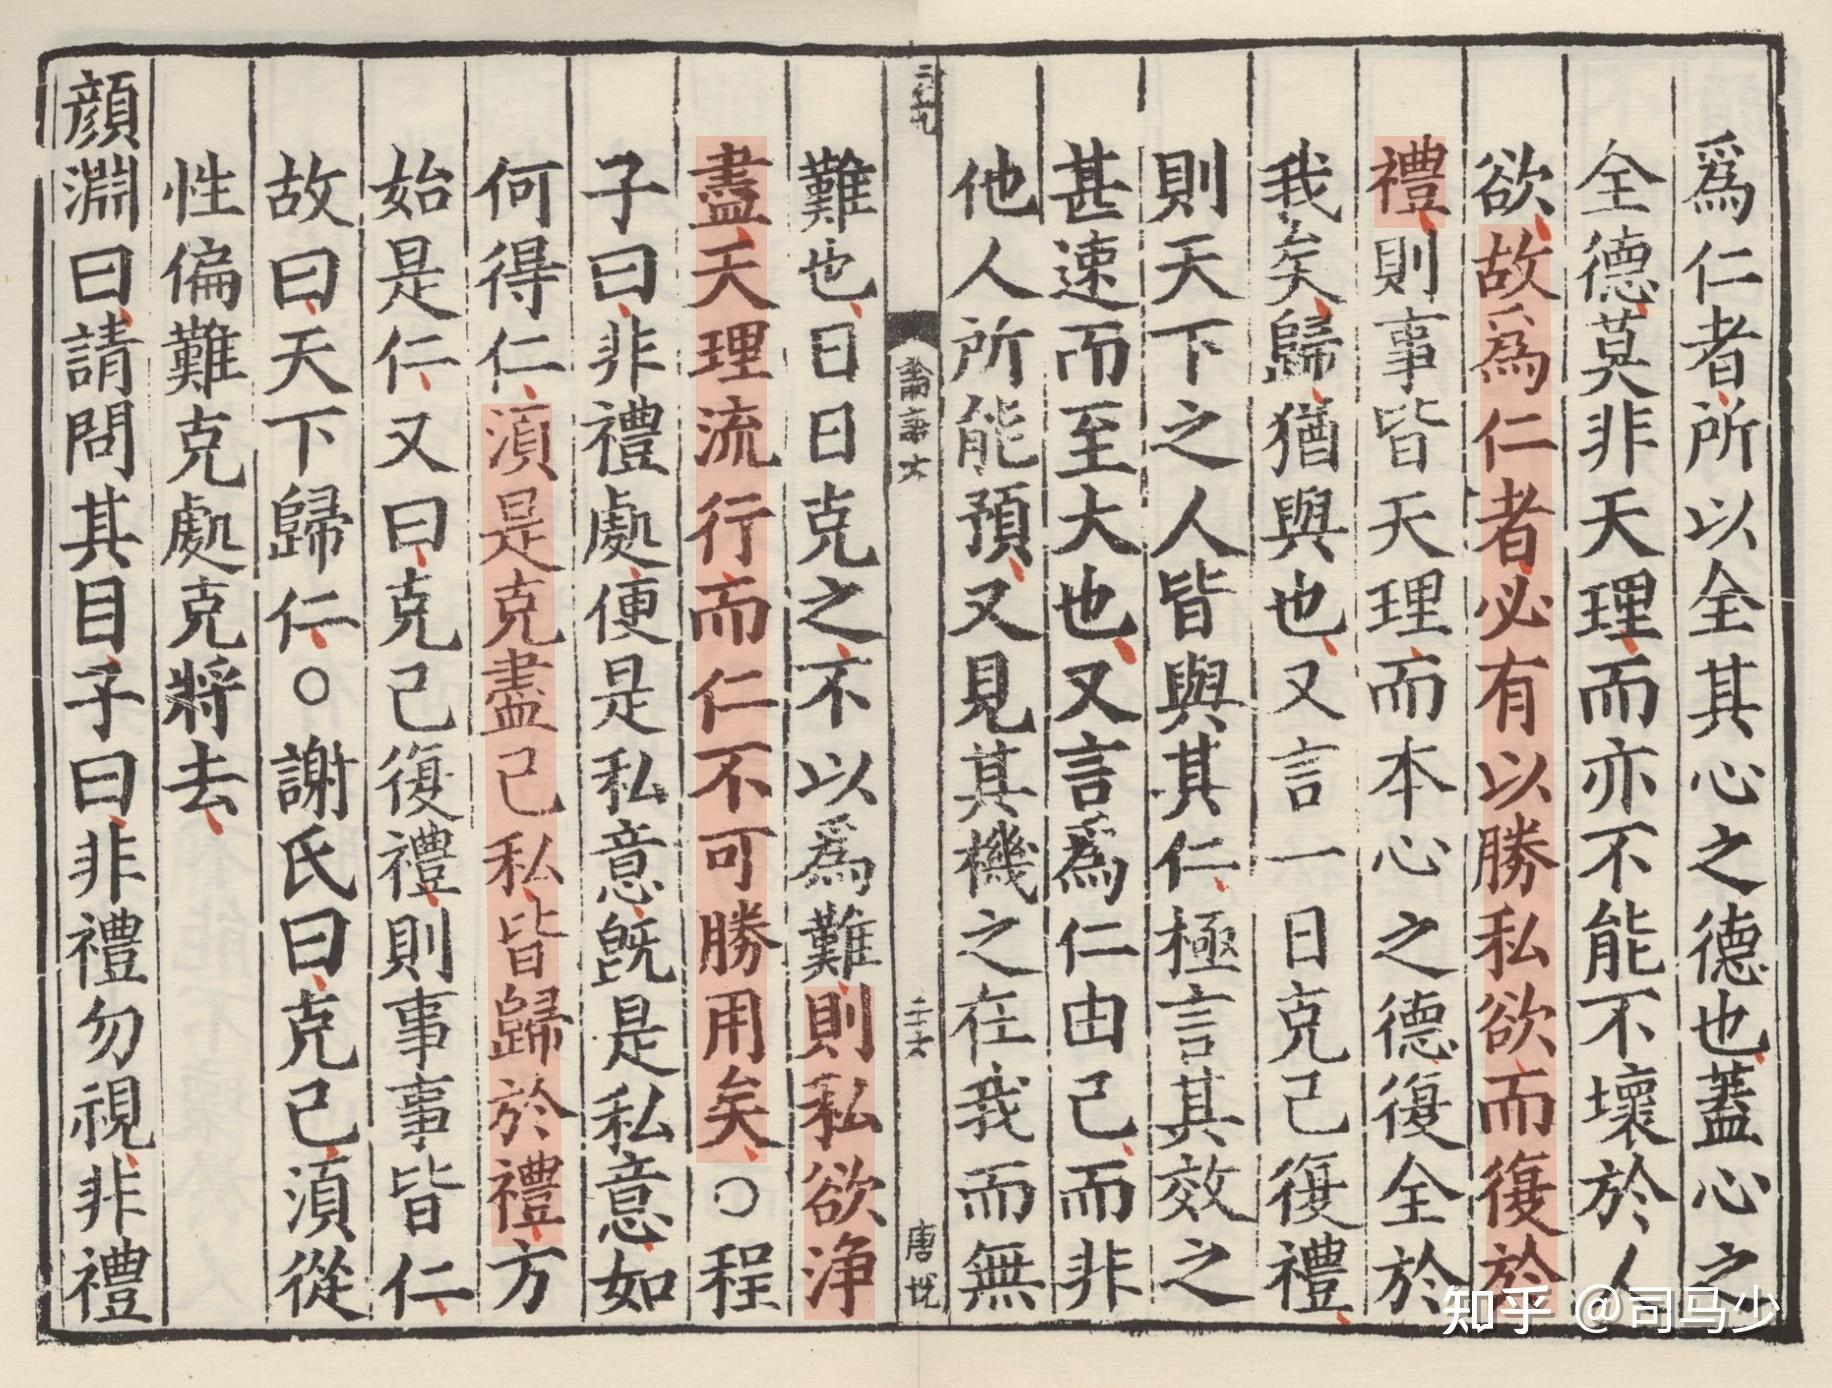 爲仁者所以全其心之德也蓋心之
全德莫非天理而亦不能不壞於人
欲故爲仁者必有以勝私欲而復於
禮則事皆天理而本心之德復全於
我矣歸猶與也又言一日克己復禮
則天下之人皆與其仁極言其效之
甚速而至大也又言爲仁由己而非
他人所能預又見其機之在我而無
論語六
二十六
唐悅
難也日日克之不以爲難則私欲淨
盡天理流行而仁不可勝用矣○程
子曰非禮處便是私意旣是私意如
何得仁須是克盡己私皆歸於禮方
始是仁又曰克己復禮則事事皆仁
故曰天下歸仁○謝氏曰克己須從
性偏難克處克將去
顏淵曰請問其目子曰非禮勿視非禮
知乎 @司马少